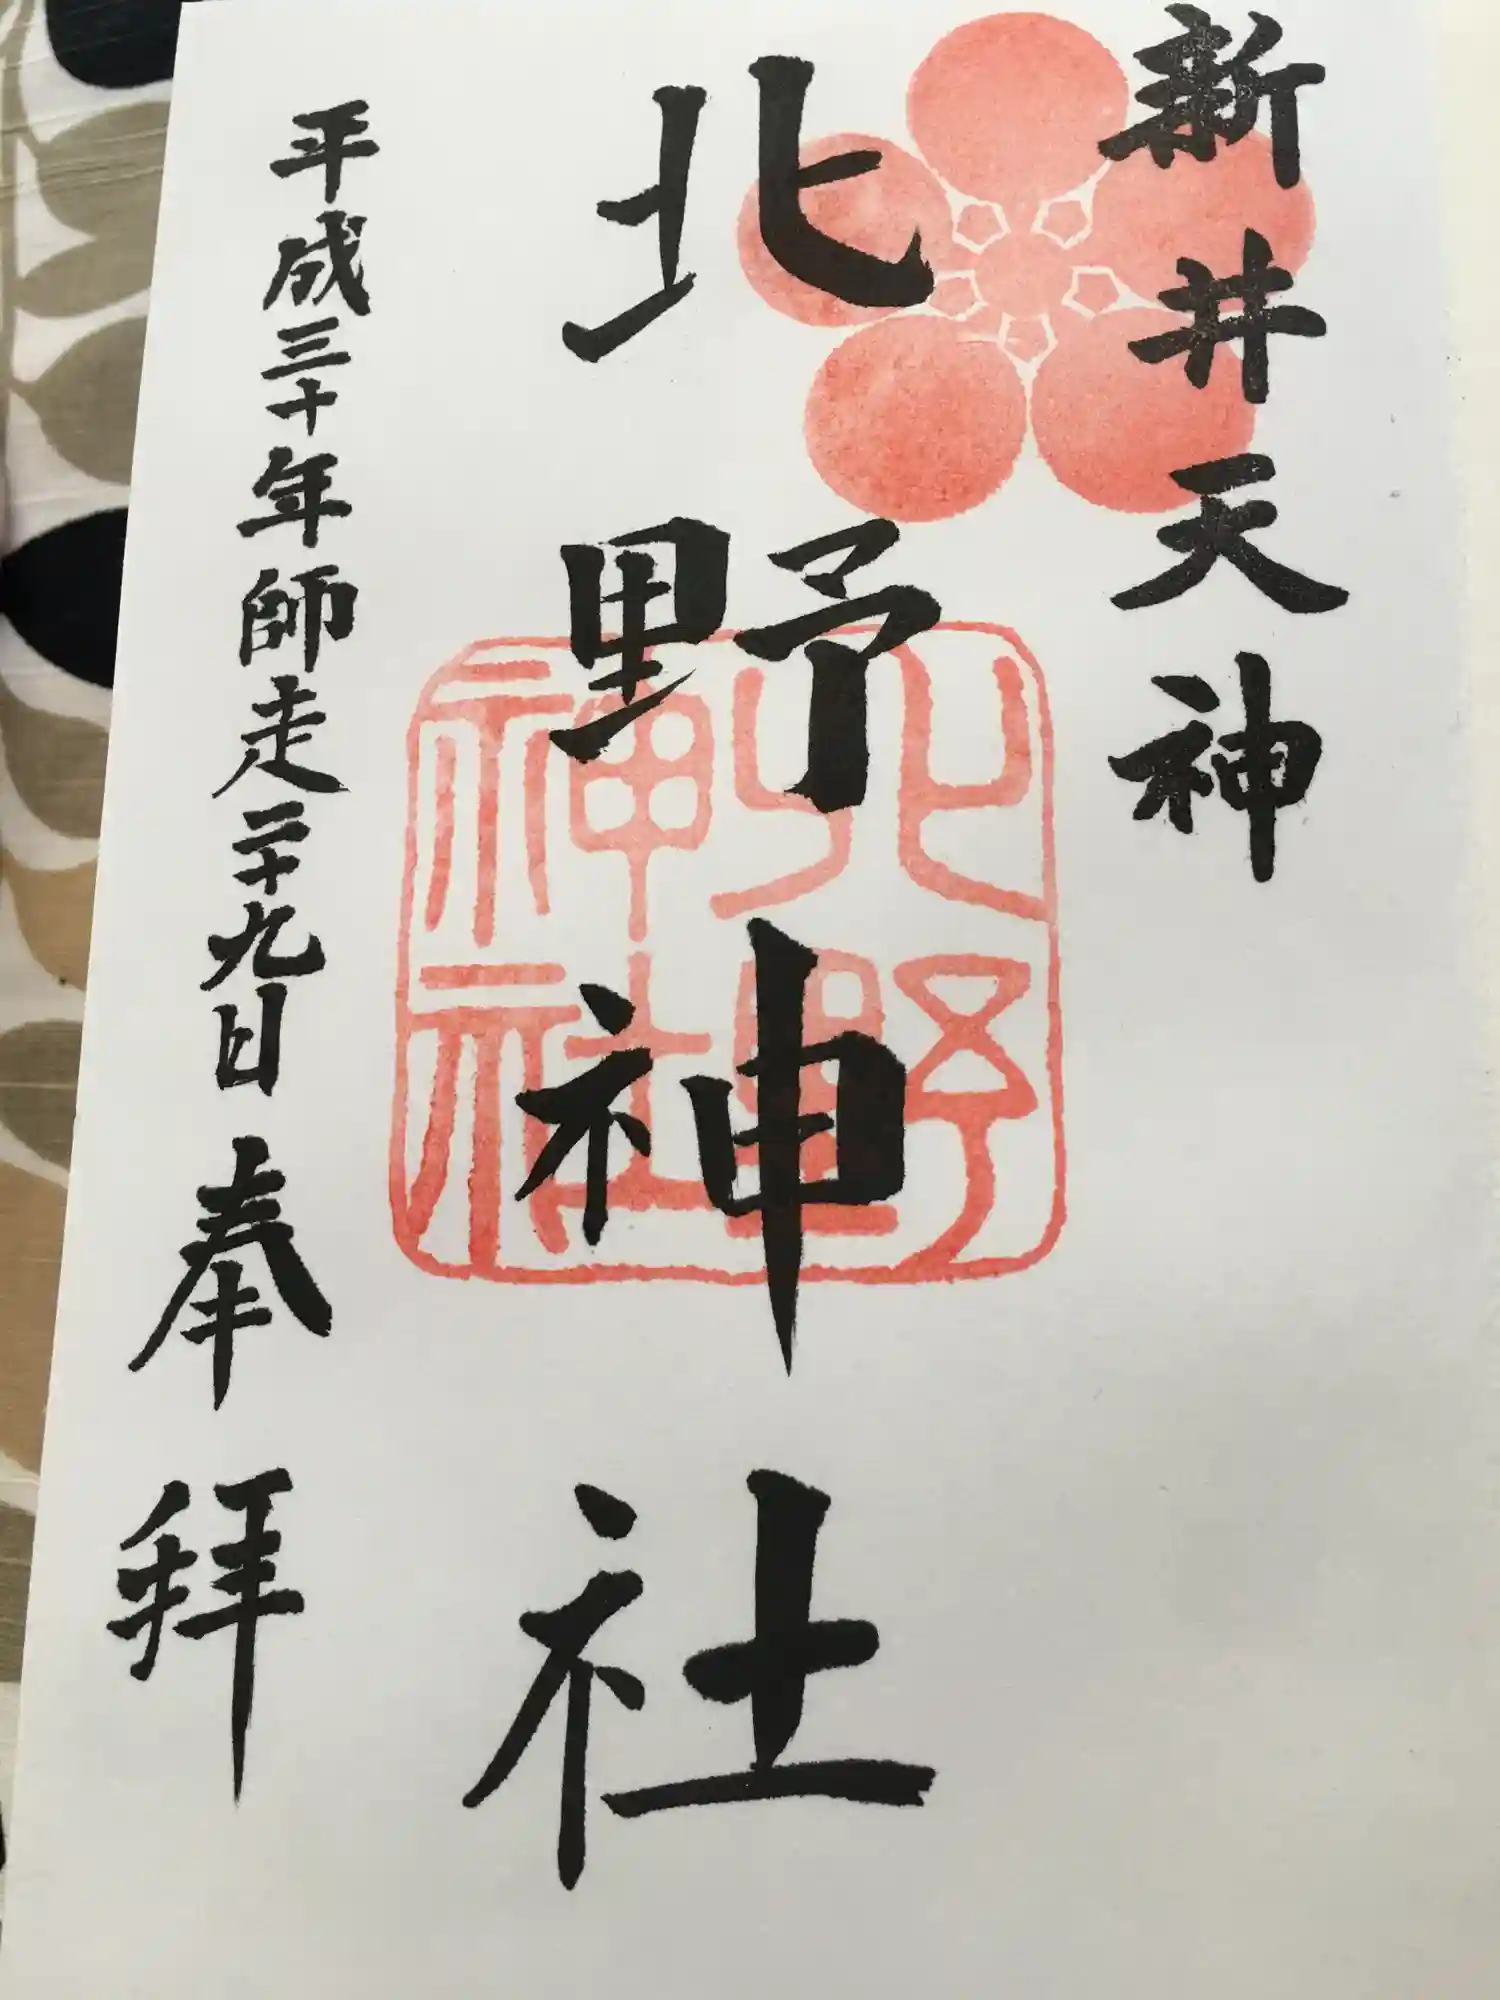 新井天神
北野神社
北野神社
平成三十年師走二十九日 奉拝